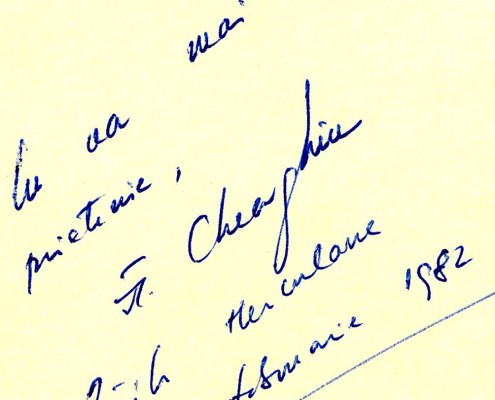 cu va mai
prietenie,
Gheorghiu
Herculane
februarie 1982